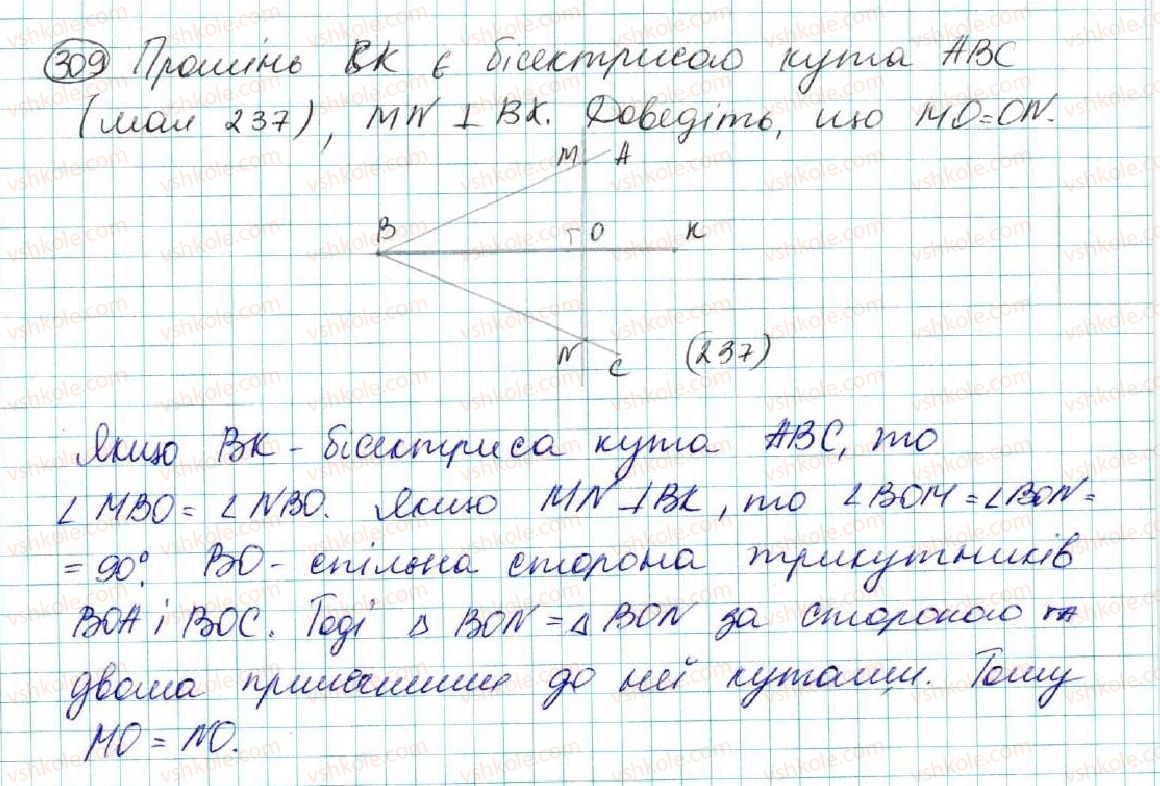 309 Промінь BK є бісектрисою кута ABC
(мал 237), MN ⊥ BK. Доведіть, що MO=ON.
M A
B O K
N C (237)
Якщо BK - бісектриса кута ABC, то
∠MBO = ∠NBO. Якщо MN ⊥ BK, то ∠BOM = ∠BON =
= 90°. BO - спільна сторона трикутників
BOA і BOC. Тоді △ BON = △ BON за стороною та
двома прилеглими до неї кутами. Тому
MO = NO.
vshkole.com